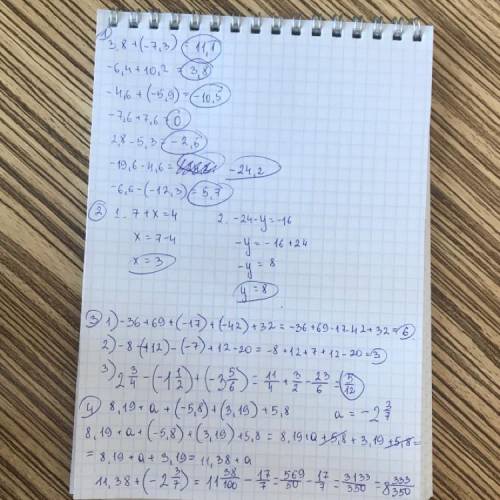 1)
3,8 + (-7,3) = 11,1
-6,4 + 10,2 = 3,8
-4,6 + (-5,9) = -10,5
-7,6 + 7,6 = 0
2,8 - 5,3 = -2,5
-19,6 - 4,6 = -24,2
-6,6 - (-12,3) = 5,7
2) 1. 7 + x = 4 2. -24 - y = -16
x = 7 - 4 -y = -16 + 24
x = 3 -y = 8
y = 8
3) 1) -36 + 69 + (-17) + (-42) + 32 = -36 + 69 - 17 - 42 + 32 = 6
2) -8 - (+12) - (-7) + 12 - 20 = -8 + 12 + 7 + 12 - 20 = 3
3) 2 3/4 - (-1 1/2) + (-3 5/6) = 11/4 + 3/2 - 23/6 = 5/12
4) 8,19 + a + (-5,8) + (3,19) + 5,8 a = -2 3/7
8,19 + a + (-5,8) + (3,19) + 5,8 = 8,19 + a + 5,8 + 3,19 + 5,8 =
= 8,19 + a + 3,19 = 11,38 + a
11,38 + (-2 3/7) = 11 38/100 - 17/7 = 569/50 - 17/7 = 3133/350 = 8 333/350